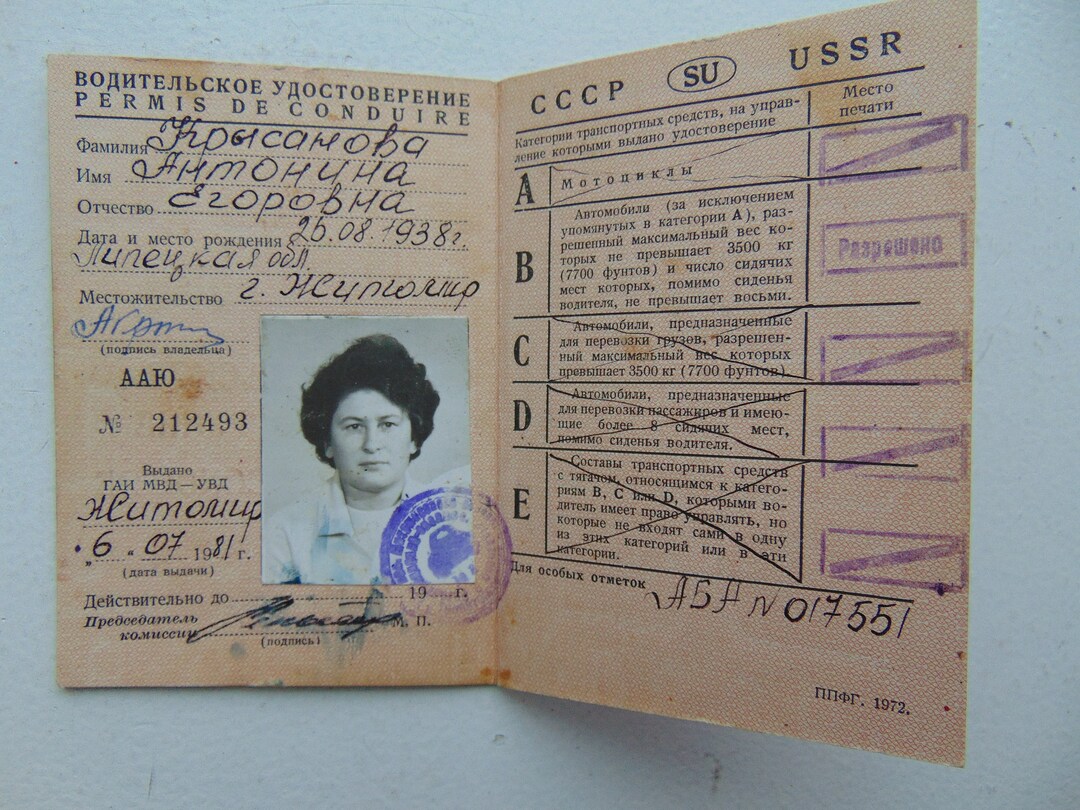 ВОДИТЕЛЬСКОЕ УДОСТОВЕРЕНИЕ
PERMIS DE CONDUIRE
Фамилия Крысанова
Имя Антонина
Отчество Егоровна
Дата и место рождения 26.08.1938г.
Липецкая обл.
Местожительство г. Житомир
(подпись владельца)
ААЮ
№ 212493
Выдано
ГАИ МВД — УВД
Житомир
„6“ 07 1981 г.
(дата выдачи)
Действительно до 19 г.
Председатель
комиссии М. П.
(подпись)
СССР SU USSR
Категории транспортных средств, на управ-
ление которыми выдано удостоверение
Место
печати
A Мотоциклы
B Автомобили (за исключением
упомянутых в категории А), раз-
решенный максимальный вес ко-
торых не превышает 3500 кг
(7700 фунтов) и число сидячих
мест которых, помимо сиденья
водителя, не превышает восьми.
Разрешено
C Автомобили, предназначенные
для перевозки грузов, разрешен-
ный максимальный вес которых
превышает 3500 кг (7700 фунтов).
D Автомобили, предназначенные
для перевозки пассажиров и имею-
щие более 8 сидячих мест,
помимо сиденья водителя.
E Составы транспортных средств
с тягачом, относящимся к катего-
риям В, С или D, которыми во-
дитель имеет право управлять, но
которые не входят сами в одну
из этих категорий или в эти
категории.
Для особых отметок
АБА № 017551
ППФГ. 1972.